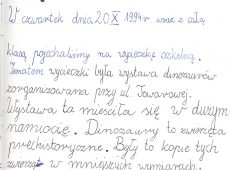 W czwartek dnia 20 X 1994 r wraz z całą
klasą pojechaliśmy na wycieczkę szkolną.
Tematem wycieczki była wystawa dinozaurów
zorganizowana przy ul. Towarowej.
Wystawa ta mieściła się w dużym
namiocie. Dinozaury to zwierzęta
prechistoryczne. Były to kopie tych
zwierząt w mniejszych wymiarach.